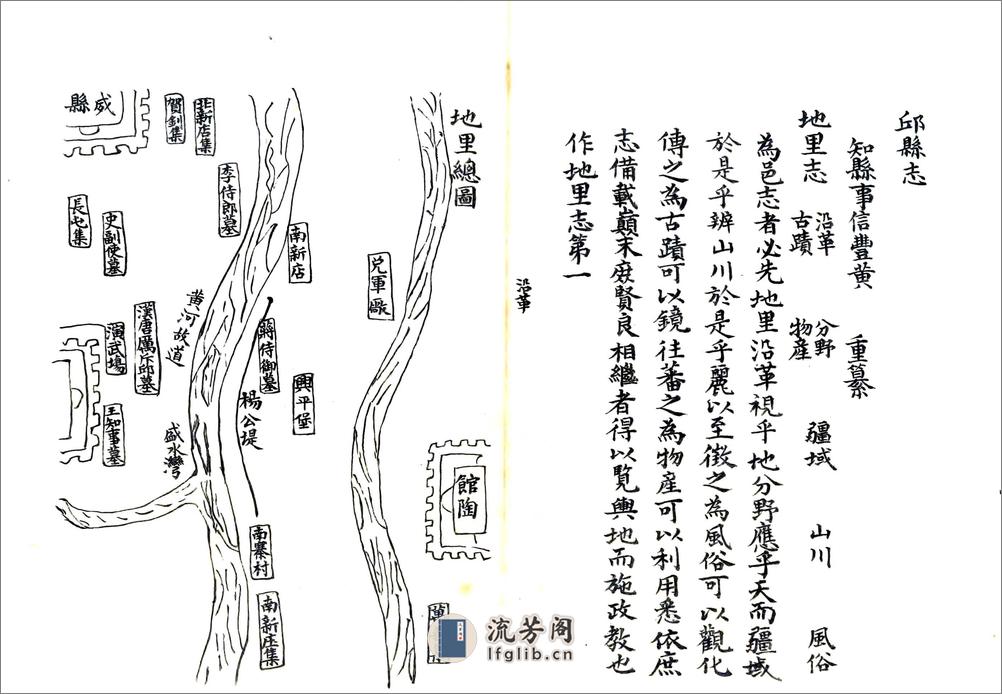 邱縣志
知縣事信豐黃 重纂
地里志 沿革 古蹟 分野 物産 疆域 山川 風俗
為邑志者必先地里沿革視乎地分野應乎天而疆域
於是乎辨山川於是乎麗以至徵之為風俗可以觀化
傳之為古蹟可以鏡往蕃之為物産可以利用悉依庶
志備載巔末庻賢良相繼者得以覧輿地而施政教也
作地里志第一
沿革
地里總圖
兌軍厫
館陶
南新店
蔣侍御墓
興平堡
楊公堤
南寨村
南新庄集
李侍郎墓
北新店集
賀釗集
威縣
黄河故道
盛水灣
史副使墓
長屯集
漢唐厲斥邱墓
演武塲
王知事墓
流芳阁
lfglib.cn